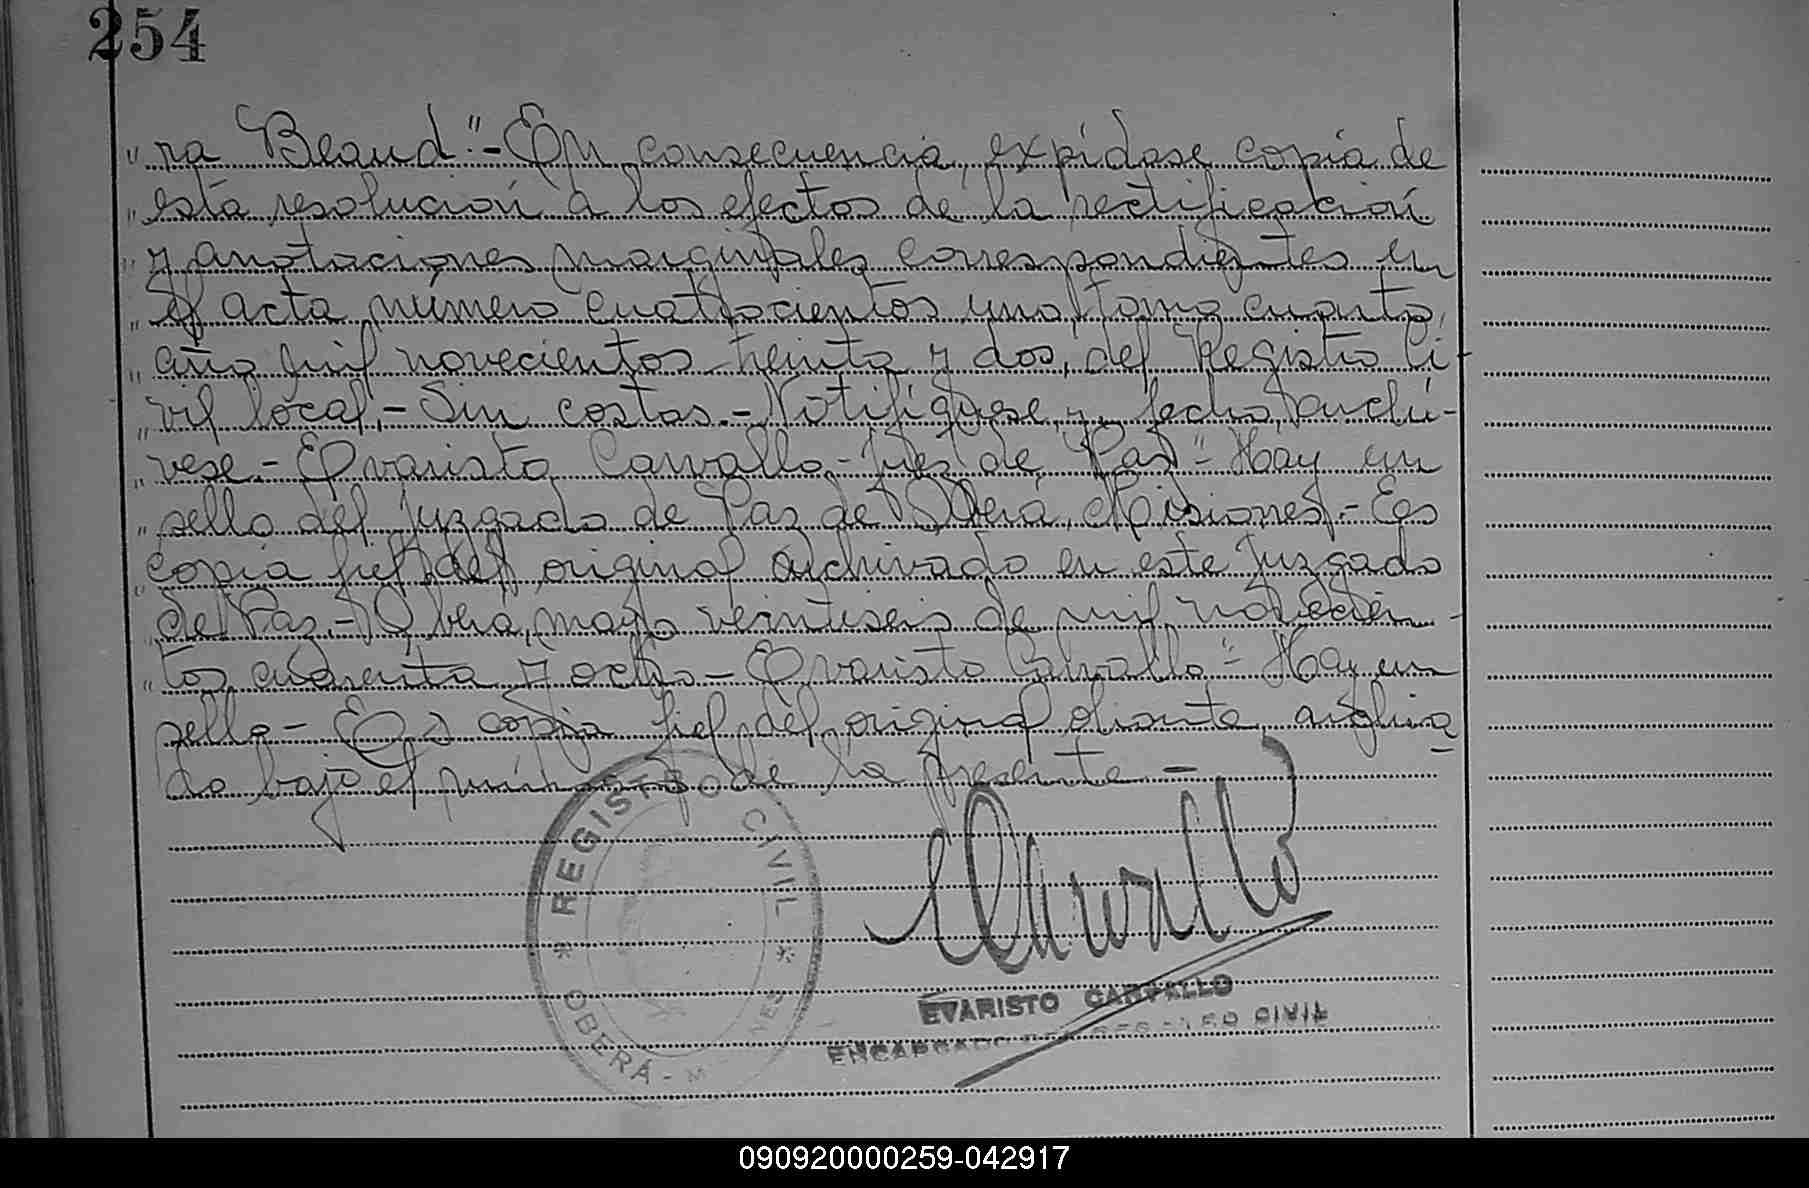 254
" ra Beaud."- En consecuencia, expídase copia de
" esta resolución a los efectos de la rectificación
" y anotaciones marginales correspondientes en
" el acta número cuatrocientos uno, tomo cuarto,
" año mil novecientos treinta y dos, del Registro Ci-
" vil local.- Sin costas.- Notifíquese y, fecho, archí-
" vese.- Evaristo Carvallo.- Juez de Paz"- Hay un
" sello del Juzgado de Paz de Oberá, Misiones.- Es
" copia fiel del original archivado en este Juzgado
" de Paz.- Oberá, mayo veintiseis de mil novecien-
" tos cuarenta y ocho- Evaristo Carvallo"- Hay un
sello- Es copia fiel del original obrante, archiva
do bajo el número de la presente.-
REGISTRO CIVIL
OBERÁ - MISIONES
EVARISTO CARVALLO
ENCARGADO DEL REGISTRO CIVIL
090920000259-042917